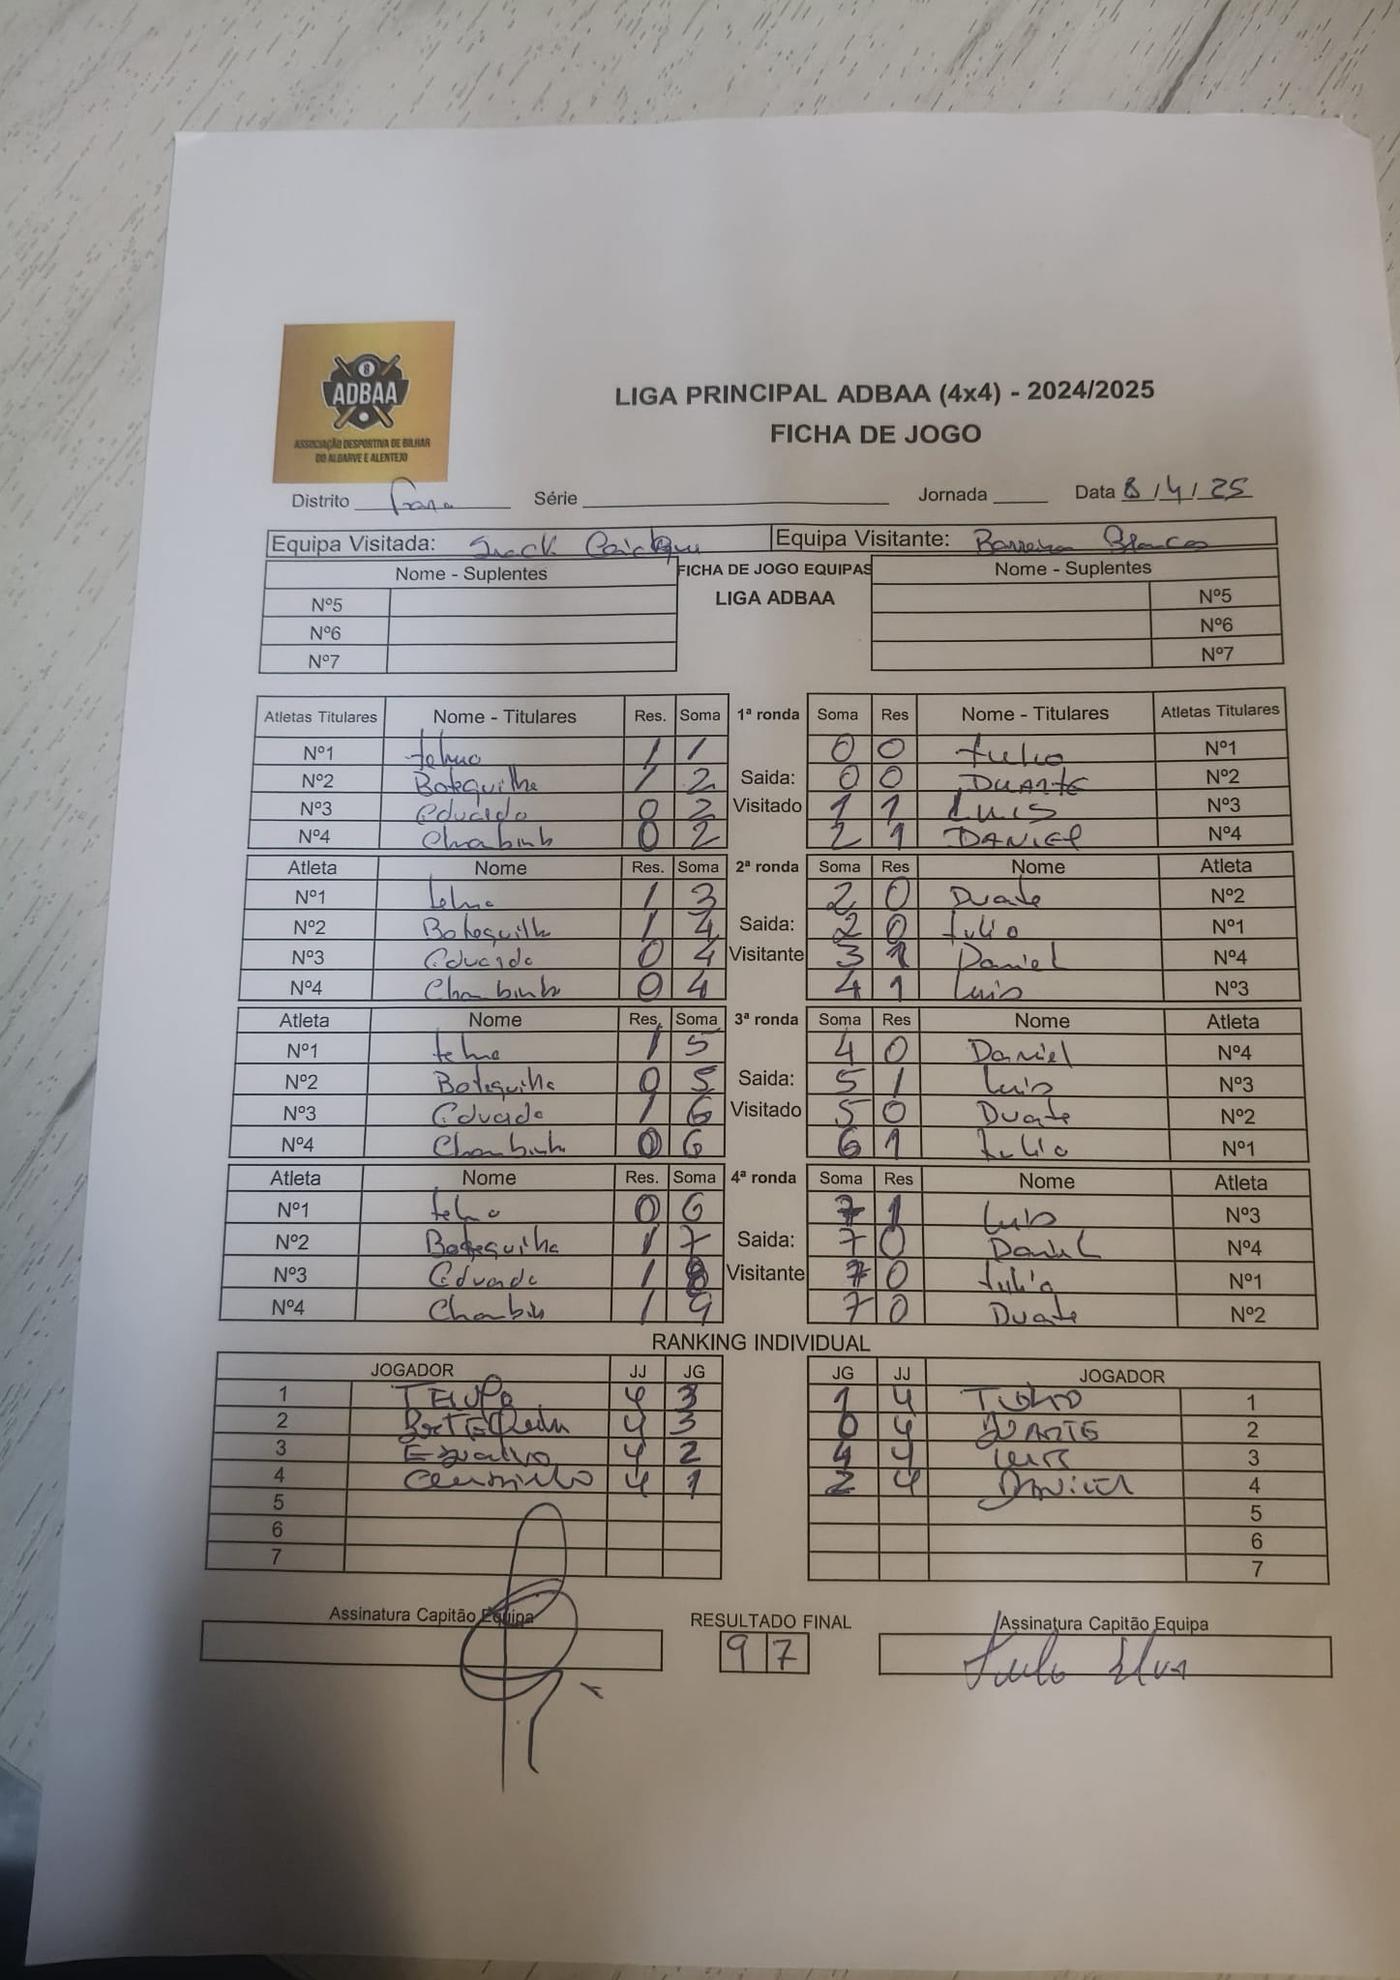 8
ADBAA
ASSOCIAÇÃO DESPORTIVA DE BILHAR
DO ALGARVE E ALENTEJO
LIGA PRINCIPAL ADBAA (4x4) - 2024/2025
FICHA DE JOGO
Distrito Série Jornada Data 8/4/25
Equipa Visitada: Snack Equipa Visitante: Barreira Brancas
Nome - Suplentes FICHA DE JOGO EQUIPAS Nome - Suplentes
Nº5 LIGA ADBAA Nº5
Nº6 Nº6
Nº7 Nº7
Atletas Titulares Nome - Titulares Res. Soma 1ª ronda Soma Res Nome - Titulares Atletas Titulares
Nº1 telmo 1 1 0 0 tulio Nº1
Nº2 Botequilha 1 2 Saida: 0 0 DUARTE Nº2
Nº3 Eduardo 0 2 Visitado 1 1 LUIS Nº3
Nº4 Chambinho 0 2 2 1 DANIEL Nº4
Atleta Nome Res. Soma 2ª ronda Soma Res Nome Atleta
Nº1 telmo 1 3 2 0 Duarte Nº2
Nº2 Botequilha 1 4 Saida: 2 0 tulio Nº1
Nº3 Eduardo 0 4 Visitante 3 1 Daniel Nº4
Nº4 Chambinho 0 4 4 1 Luis Nº3
Atleta Nome Res. Soma 3ª ronda Soma Res Nome Atleta
Nº1 telmo 1 5 4 0 Daniel Nº4
Nº2 Botequilha 0 5 Saida: 5 1 Luis Nº3
Nº3 Eduardo 1 6 Visitado 5 0 Duarte Nº2
Nº4 Chambinho 0 6 6 1 tulio Nº1
Atleta Nome Res. Soma 4ª ronda Soma Res Nome Atleta
Nº1 telmo 0 6 7 1 Luis Nº3
Nº2 Botequilha 1 7 Saida: 7 0 Daniel Nº4
Nº3 Eduardo 1 8 Visitante 7 0 tulio Nº1
Nº4 Chambinho 1 9 7 0 Duarte Nº2
RANKING INDIVIDUAL
JOGADOR JJ JG JG JJ JOGADOR
1 TELMO 4 3 1 4 TULIO 1
2 4 3 0 4 DUARTE 2
3 4 2 4 4 LUIS 3
4 4 1 2 4 DANIEL 4
5 5
6 6
7 7
Assinatura Capitão Equipa RESULTADO FINAL Assinatura Capitão Equipa
9 7 Tulio Silva